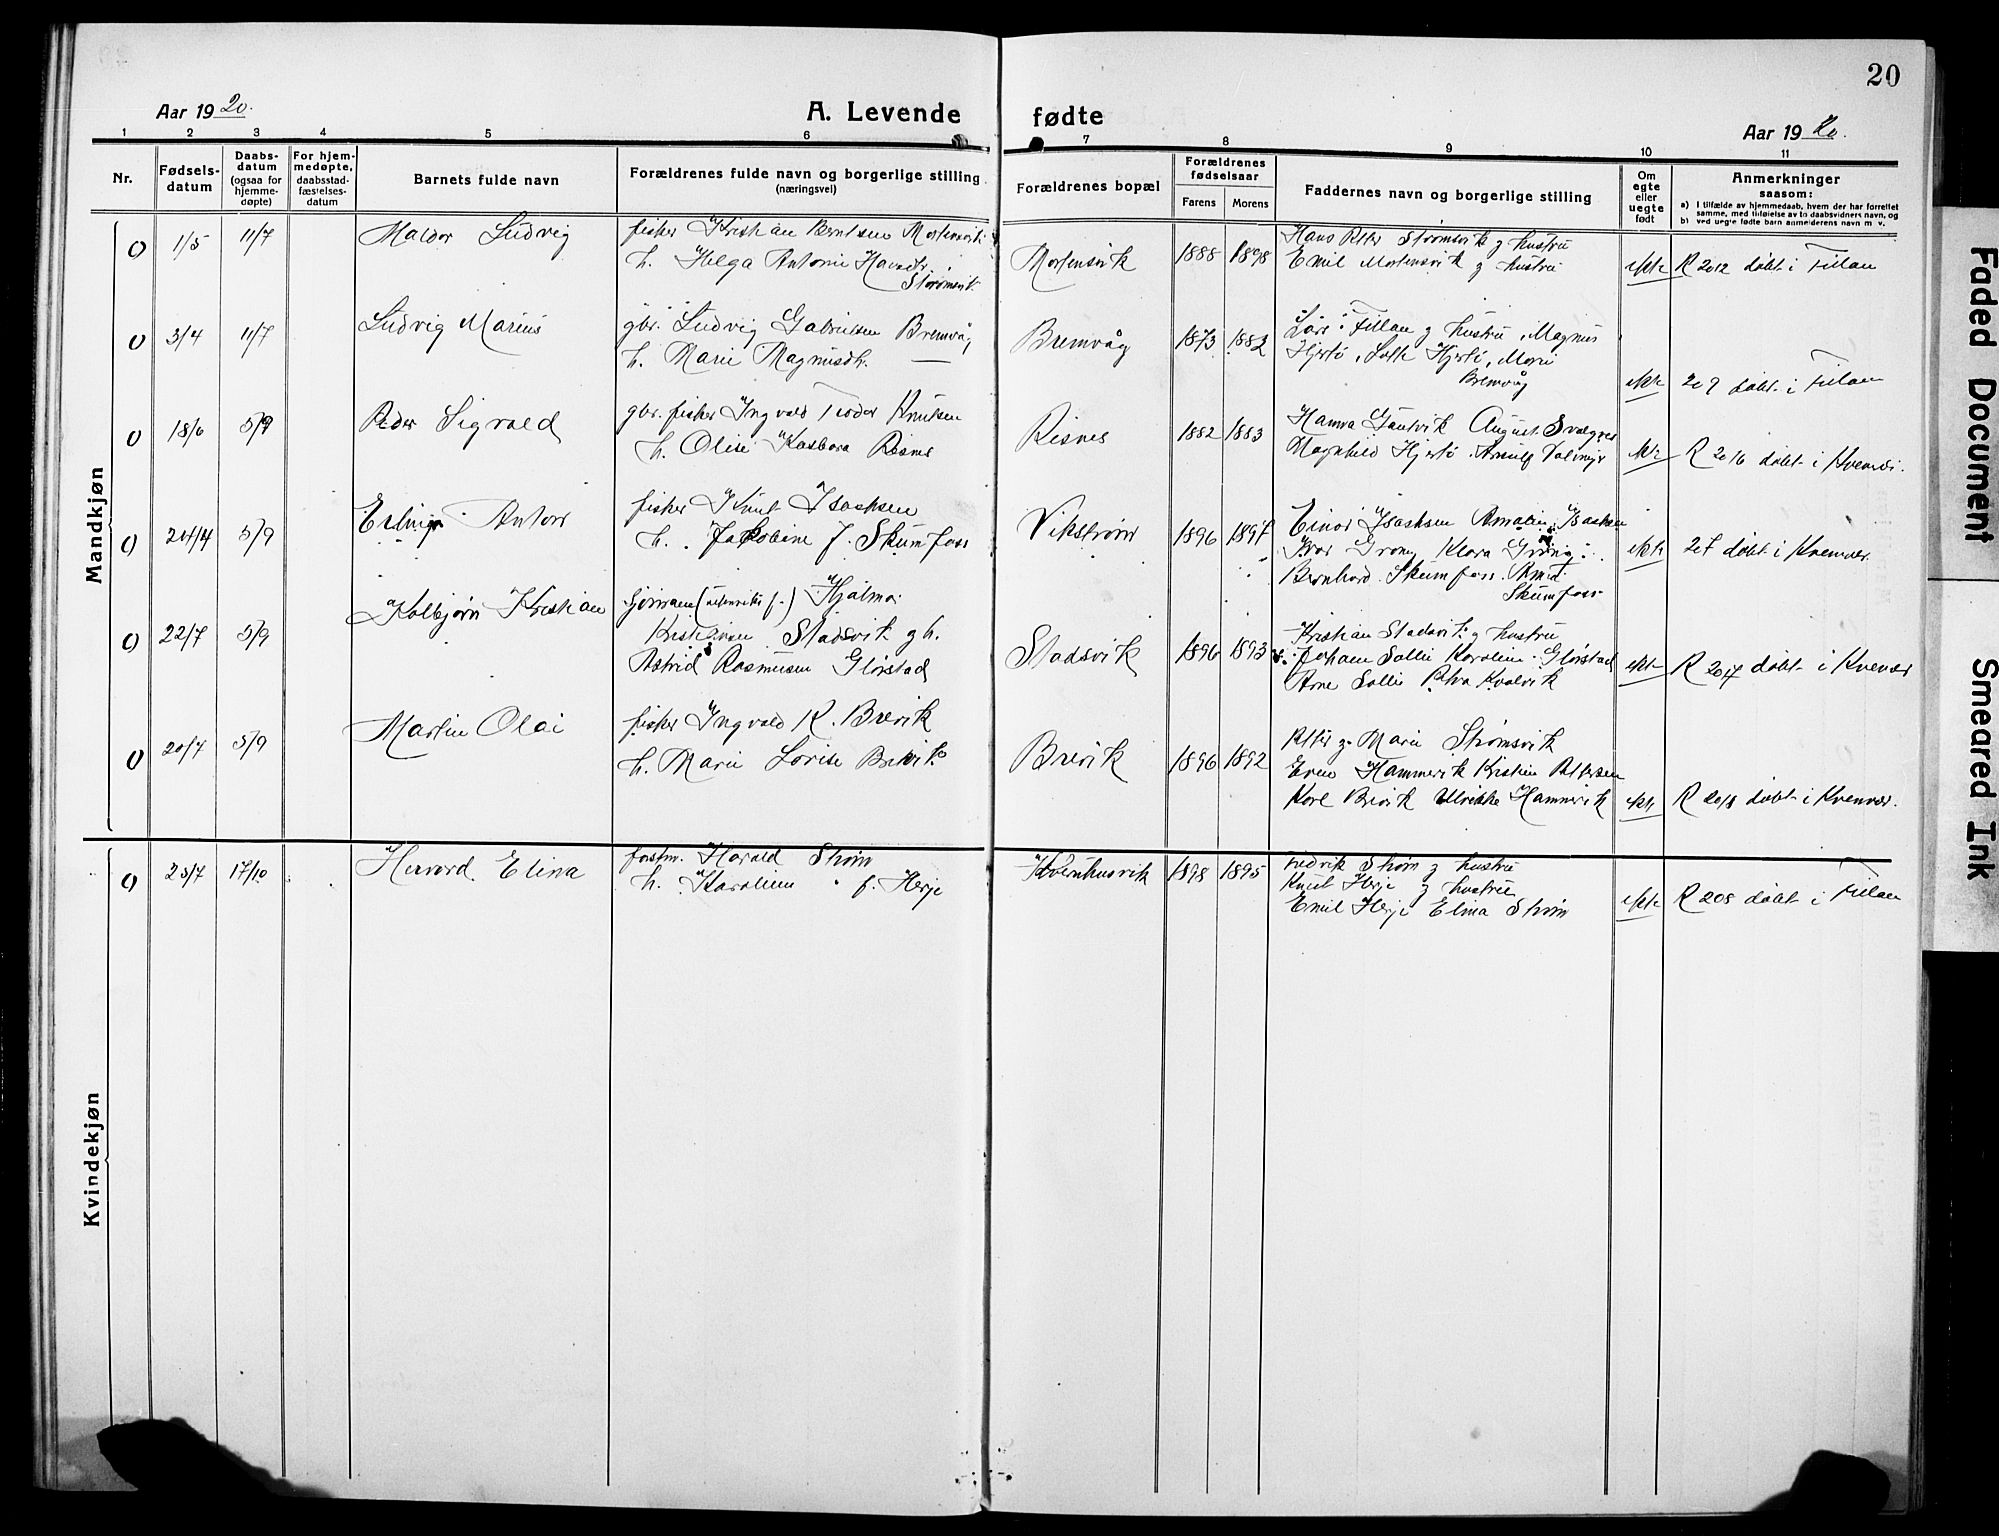 20
Aar 19 20.
A. Levende
fødte
Aar 19 20.
1 2 3 4 5 6 7 8 9 10 11
Nr.
Fødsels-
datum
Daabs-
datum
(ogsaa for
hjemme-
døpte)
For hjem-
medøpte,
daabsstad-
fæstelses-
datum
Barnets fulde navn
Forældrenes fulde navn og borgerlige stilling
(næringsvei)
Forældrenes bopæl
Forældrenes
fødselsaar
Farens Morens
Faddernes navn og borgerlige stilling
Om
egte
eller
uegte
født
Anmerkninger
saasom:
a) I tilfælde av hjemmedaab, hvem der har forrettet
samme, med tilføielse av to daabsvidners navn, og
b) ved uegte fødte barn anmelderens navn m. v.
Mandkjøn
0 1/5 11/7 Ludvig
fisker Kristian Berntsen Mortensvik
h. Helga Antonie
Strømsvik
Mortensvik 1888 1898
Hans Petter Strømsvik g hustru
Emil Mortensvik g hustru
ekte R 2012 døbt i Fillan
0 3/4 11/7 Ludvig Marius
gbr. Ludvig Gabrielsen Bremvåg
h. Marie Magnusdtr. —
Bremvåg 1873 1882
Lars Fillan g hustru, Magnus
Hjertø, Hjertø, Marie
Bremvåg
ekte 209 døbt i Fillan
0 18/6 5/9 Peder Sigvald
gbr. fisker Ingvald Teodor Knutsen
h. Olise Kasbara Risnes
Risnes 1882 1883
August
Magnhild Hjertø. Arnulf
ekte R 2016 døbt i Kvenvær.
0 24/4 5/9 Erling Anton
fisker Knut Isachsen
h. Jakobine f. Skumfoss
Vikstrøm 1896 1897
Einar Isachsen Amalie Isachsen
Ivar Grong Klara Grong
Bernhard Skumfoss.
Skumfoss
ekte 207 døbt i Kvenvær.
0 22/7 5/9 Kolbjørn Kristian
sjømann (utenriks f.) Hjalmar
Kristiansen Stadsvik g h.
Astrid Rasmusen Glørstad
Stadsvik 1896 1893
Kristian Stadsvik g hustru
Johan Sollie Karoline Glørstad
Arne Sollie Petra Kvalvik
ekte R 2017 døbt i Kvenvær
0 20/7 5/9 Martin Olai
fisker Ingvald K. Brevik
h. Marie Lovise Brevik
Brevik 1896 1892
Petter g. Marie Strømsvik
Even Hammervik Kristine Pettersen
Karl Brevik Ulrikke Hammervik
ekte R 2018 døbt i Kvenvær.
Kvindekjøn
0 23/7 17/10 Hervord Elina
forstm. Harald Strøm
h. Karoline " f. Herje
Kvernhusvik 1898 1895
Fredrik Strøm g hustru
Knut Herje g hustru
Emil Herje Elina Strøm
ekte R 208 døbt i Fillan
Faded Document Smeared Ink